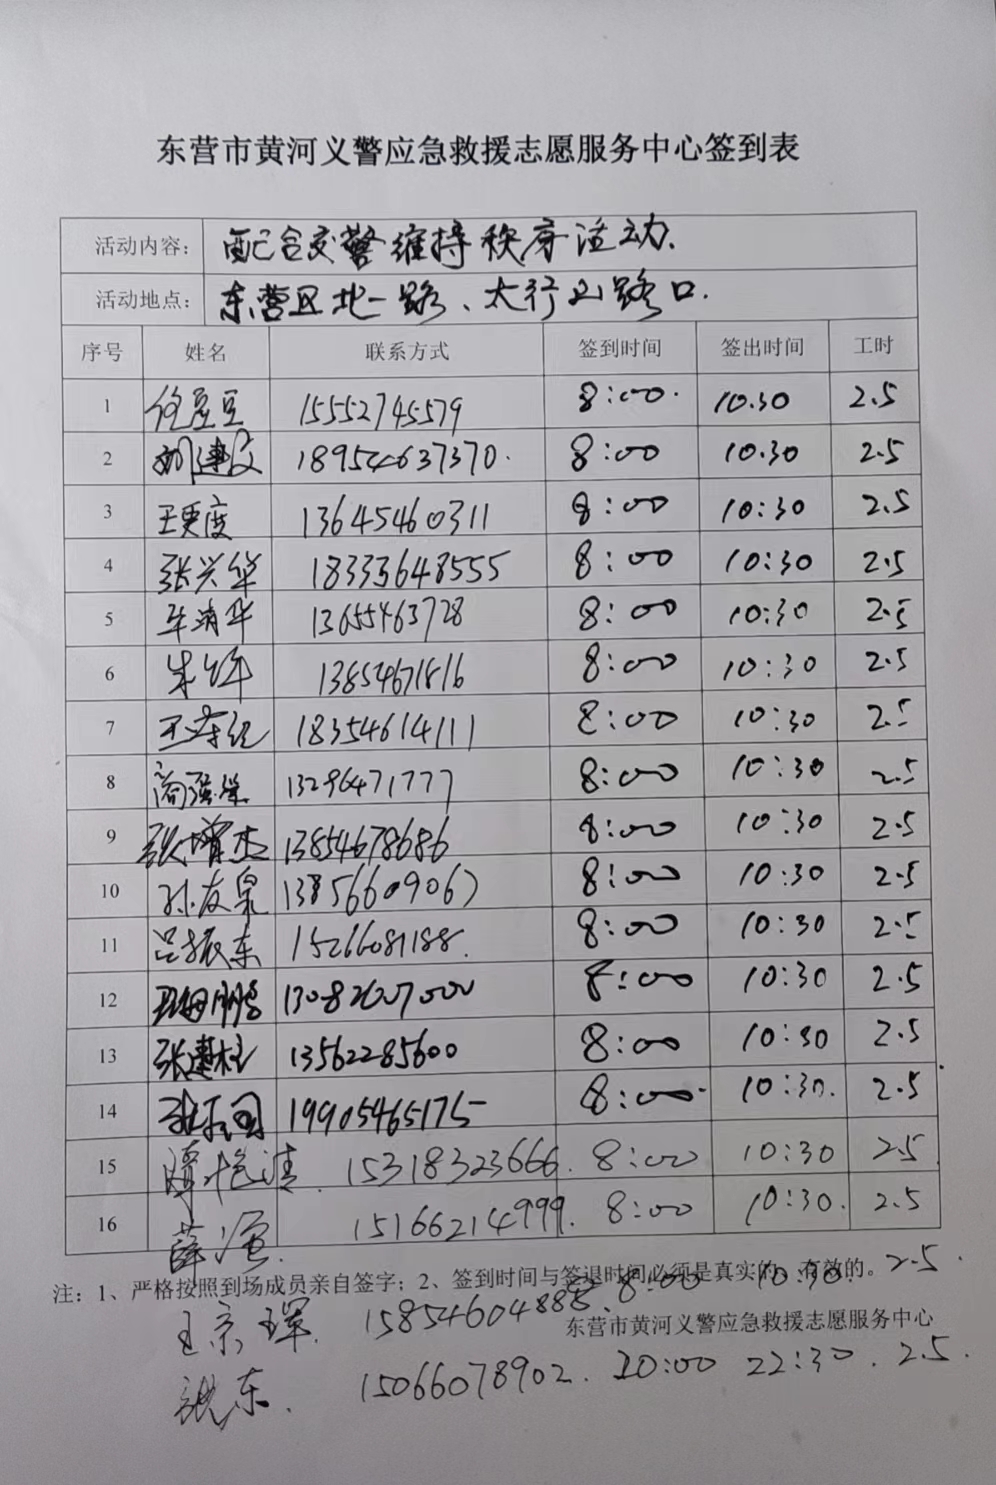 东营市黄河义警应急救援志愿服务中心签到表
活动内容： 配合交警维持秩序活动.
活动地点： 东营区北一路、太行山路口.
序号 姓名 联系方式 签到时间 签出时间 工时
1 15552745579 8:00. 10.30 2.5
2 18954637370. 8:00 10.30 2.5
3 13645460311 8:00 10:30 2.5
4 张兴华 18333648555 8:00 10:30 2.5
5 牟清华 13655463728 8:00 10:30 2.5
6 13854671816 8:00 10:30 2.5
7 18354614111 8:00 10:30 2.5
8 13296471777 8:00 10:30 2.5
9 张增杰 13854678686 8:00 10:30 2.5
10 孙友泉 13856609067 8:00 10:30 2.5
11 吕振东 15266081188. 8:00 10:30 2.5
12 13082607000 8:00 10:30 2.5
13 张建柱 13562285600 8:00 10:30 2.5
14 19905465175 8:00 10:30. 2.5
15 15318323666. 8:00 10:30 2.5
16 薛源. 15166214999. 8:00 10:30. 2.5
注：1、严格按照到场成员亲自签字；2、签到时间与签退时间必须是真实的、有效的。
王京珲. 15854604888. 8:00 10:30. 2.5.
东营市黄河义警应急救援志愿服务中心
张东. 15066078902. 20:00 22:30. 2.5.